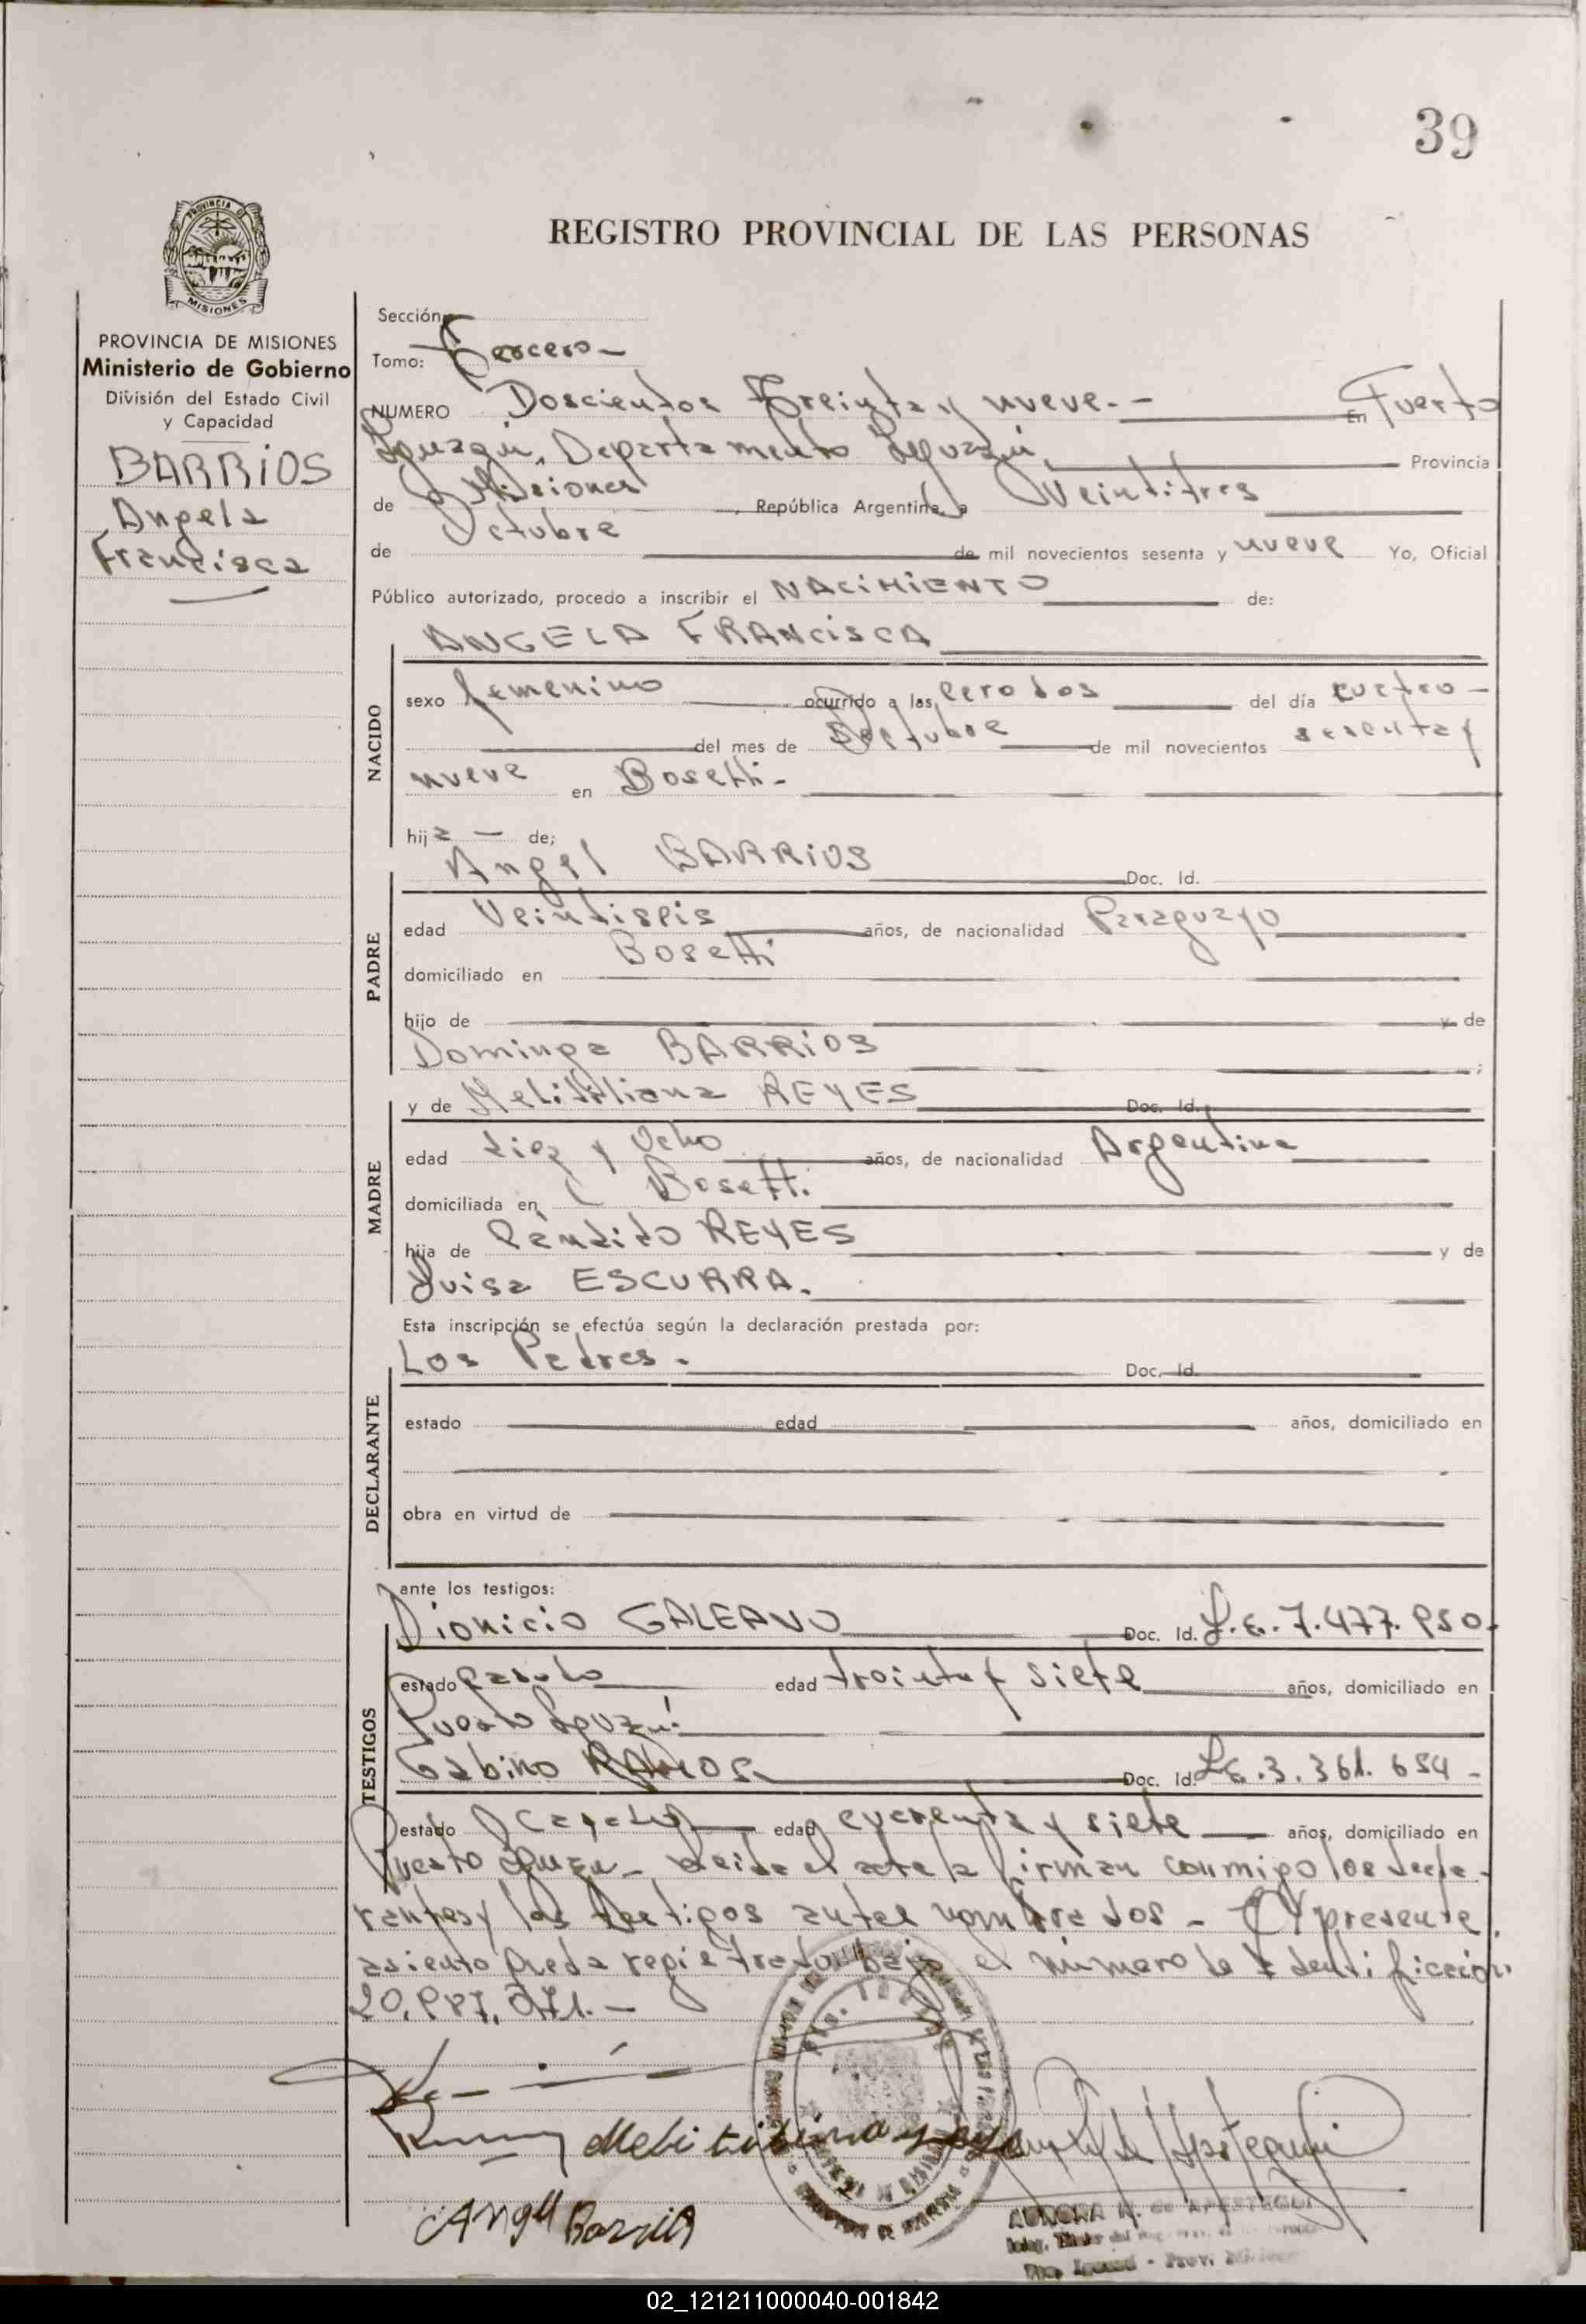 39
PROVINCIA DE
MISIONES
REGISTRO PROVINCIAL DE LAS PERSONAS
PROVINCIA DE MISIONES
Ministerio de Gobierno
División del Estado Civil
y Capacidad
BARRIOS
Angela
Francisca
Sección
Tomo: Tercero-
NUMERO Doscientos Treinta y nueve.- En Puerto
Iguazú, Departamento Iguazú, Provincia
de Misiones, República Argentina, a Veintitres
de Octubre de mil novecientos sesenta y nueve Yo, Oficial
Público autorizado, procedo a inscribir el NACIMIENTO de:
NACIDO
ANGELA FRANCISCA
sexo femenino ocurrido a las cero dos del día cuatro-
del mes de Octubre de mil novecientos sesenta y
nueve en Bosetti-
hija - de;
PADRE
Angel BARRIOS Doc. Id.
edad Veintiseis años, de nacionalidad Paraguayo
domiciliado en Bosetti
hijo de y de
Dominga BARRIOS ;
MADRE
y de REYES Doc. Id.
edad diez y Ocho años, de nacionalidad Argentina
domiciliada en Bosetti.
hija de Cándido REYES y de
Luisa ESCURRA.
Esta inscripción se efectúa según la declaración prestada por:
DECLARANTE
Los Padres. Doc. Id.
estado edad años, domiciliado en
obra en virtud de
TESTIGOS
ante los testigos:
Dionicio GALEANO Doc. Id. L.E. 7.477.950.
estado casado edad treinta y siete años, domiciliado en
Puerto Iguazú.
Gabino RAMOS Doc. Id. L.E. 3.361.654-
estado casado edad cuarenta y siete años, domiciliado en
Puerto Iguazú- Leida el acta la firman conmigo los decla-
rantes y los testigos antes nombrados- El presente
asiento queda registrado bajo el número de identificación
20.987.071.-
Angel Barrios
AURORA N. de APESTEGUI
02_121211000040-001842